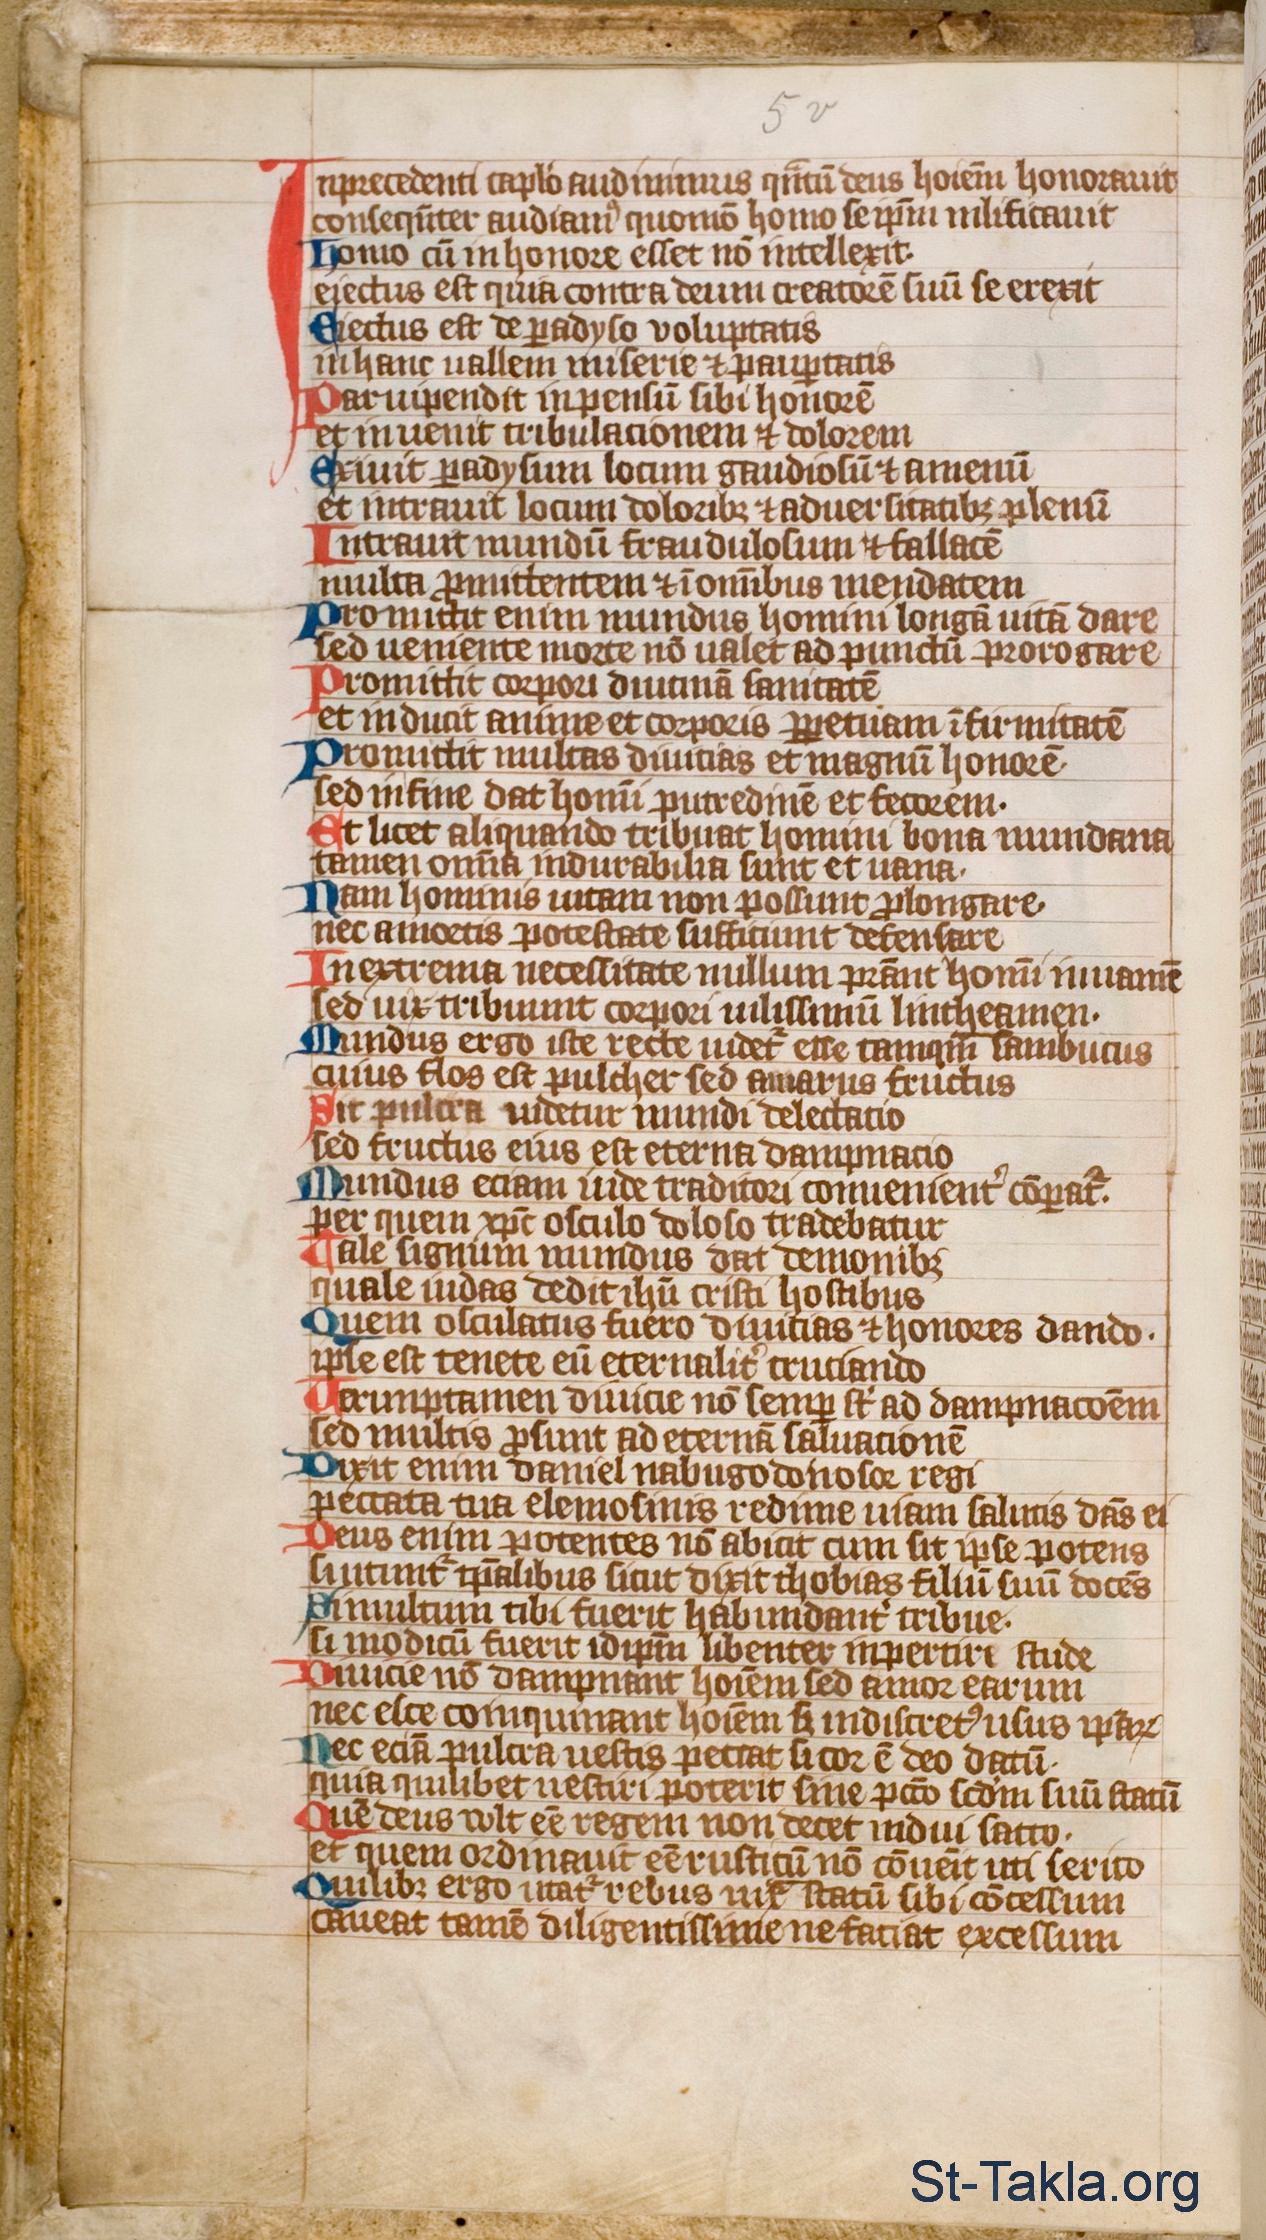 5 v
Inprecedenti caplo audiuimus qntū deus hoiēm honorauit
conseqūter audiam⁹ quomō homo seip̄m uilificauit
homo cū inhonore esset nō intellexit.
eiectus est quia contra deum creatorē suū se erexit
Eiectus est de ꝑadyso voluptatis
in hanc uallem miserie ⁊ pauꝑtatis
Paruipendit inpensū sibi honorē
et inuenit tribulacionem ⁊ dolorem
Exiuit ꝑadysum locum gaudiosū ⁊ amenū
et intrauit locum doloribꝫ ⁊ aduersitatibꝫ plenū
Intrauit mundū fraudulosum ⁊ fallacē
multa ꝓmittentem ⁊ ī om̄ibus mendacem
Promittit enim mundus homini longā uitā dare
sed ueniente morte nō ualet ad punctū prorogare
Promittit corpori diutinā sanitatē
et inducit anime et corporis ꝑpetuam īfirmitatē
Promittit multas diuitias et magnū honorē.
sed in fine dat homī putredinē et fetorem.
Et licet aliquando tribuat homini bona mundana
tamen om̄ia indurabilia sunt et uana.
Nam hominis uitam non possunt ꝓlongare.
nec a mortis potestate sufficiunt defensare
In extrema necessitate nullum prānt homī iuuamē
sed uix tribuunt corpori uilissimū lintheamen.
Mundus ergo iste recte uidet᷑ esse tamqm̄ sambucus
cuius flos est pulcher sed amarus fructus
Sic pulcra uidetur mundi delectatio
sed fructus eius est eterna dampnacio
Mundus eciam iude traditori conuenient᷑ cōꝑat᷑.
per quem xp̄c osculo doloso tradebatur
Tale signum mundus dat demonibꝫ
quale iudas dedit ihū cristi hostibus
Quem osculatus fuero diuitias ⁊ honores dando.
ipse est tenete eū eternalit᷑ cruciando
Uerumptamen diuicie nō semꝑ st᷑ ad dampnacōem
sed multis ꝓsunt ad eternā saluationē
Dixit enim daniel nabugodonosor regi
peccata tua elemosinis redime uiam salutis dās ei
Deus enim potentes nō abicit cum sit ipse potens
sicut dixit thobias filiū suū docēs
Si multum tibi fuerit habundant᷑ tribue.
si modicū fuerit idip̄m libenter inpertiri stude
Diuicie nō dampnant hoiēm sed amor earum
nec esce coinquinant hoiēm sꝫ indiscret⁹ usus ip̄aꝝ
Nec eciā pulcra uestis peccat si cor ē deo datū.
quia quilibet uestiri poterit sine pccō scdm suū statū
Quē deus wlt eē regem non decet indui sacco.
et quem ordinauit eē rusticū nō cōuēit uti serico
Quilibꝫ ergo utat᷑ rebus iux̄ statū sibi cōcessum
caueat tamē diligentissime ne faciat excessum
St-Takla.org